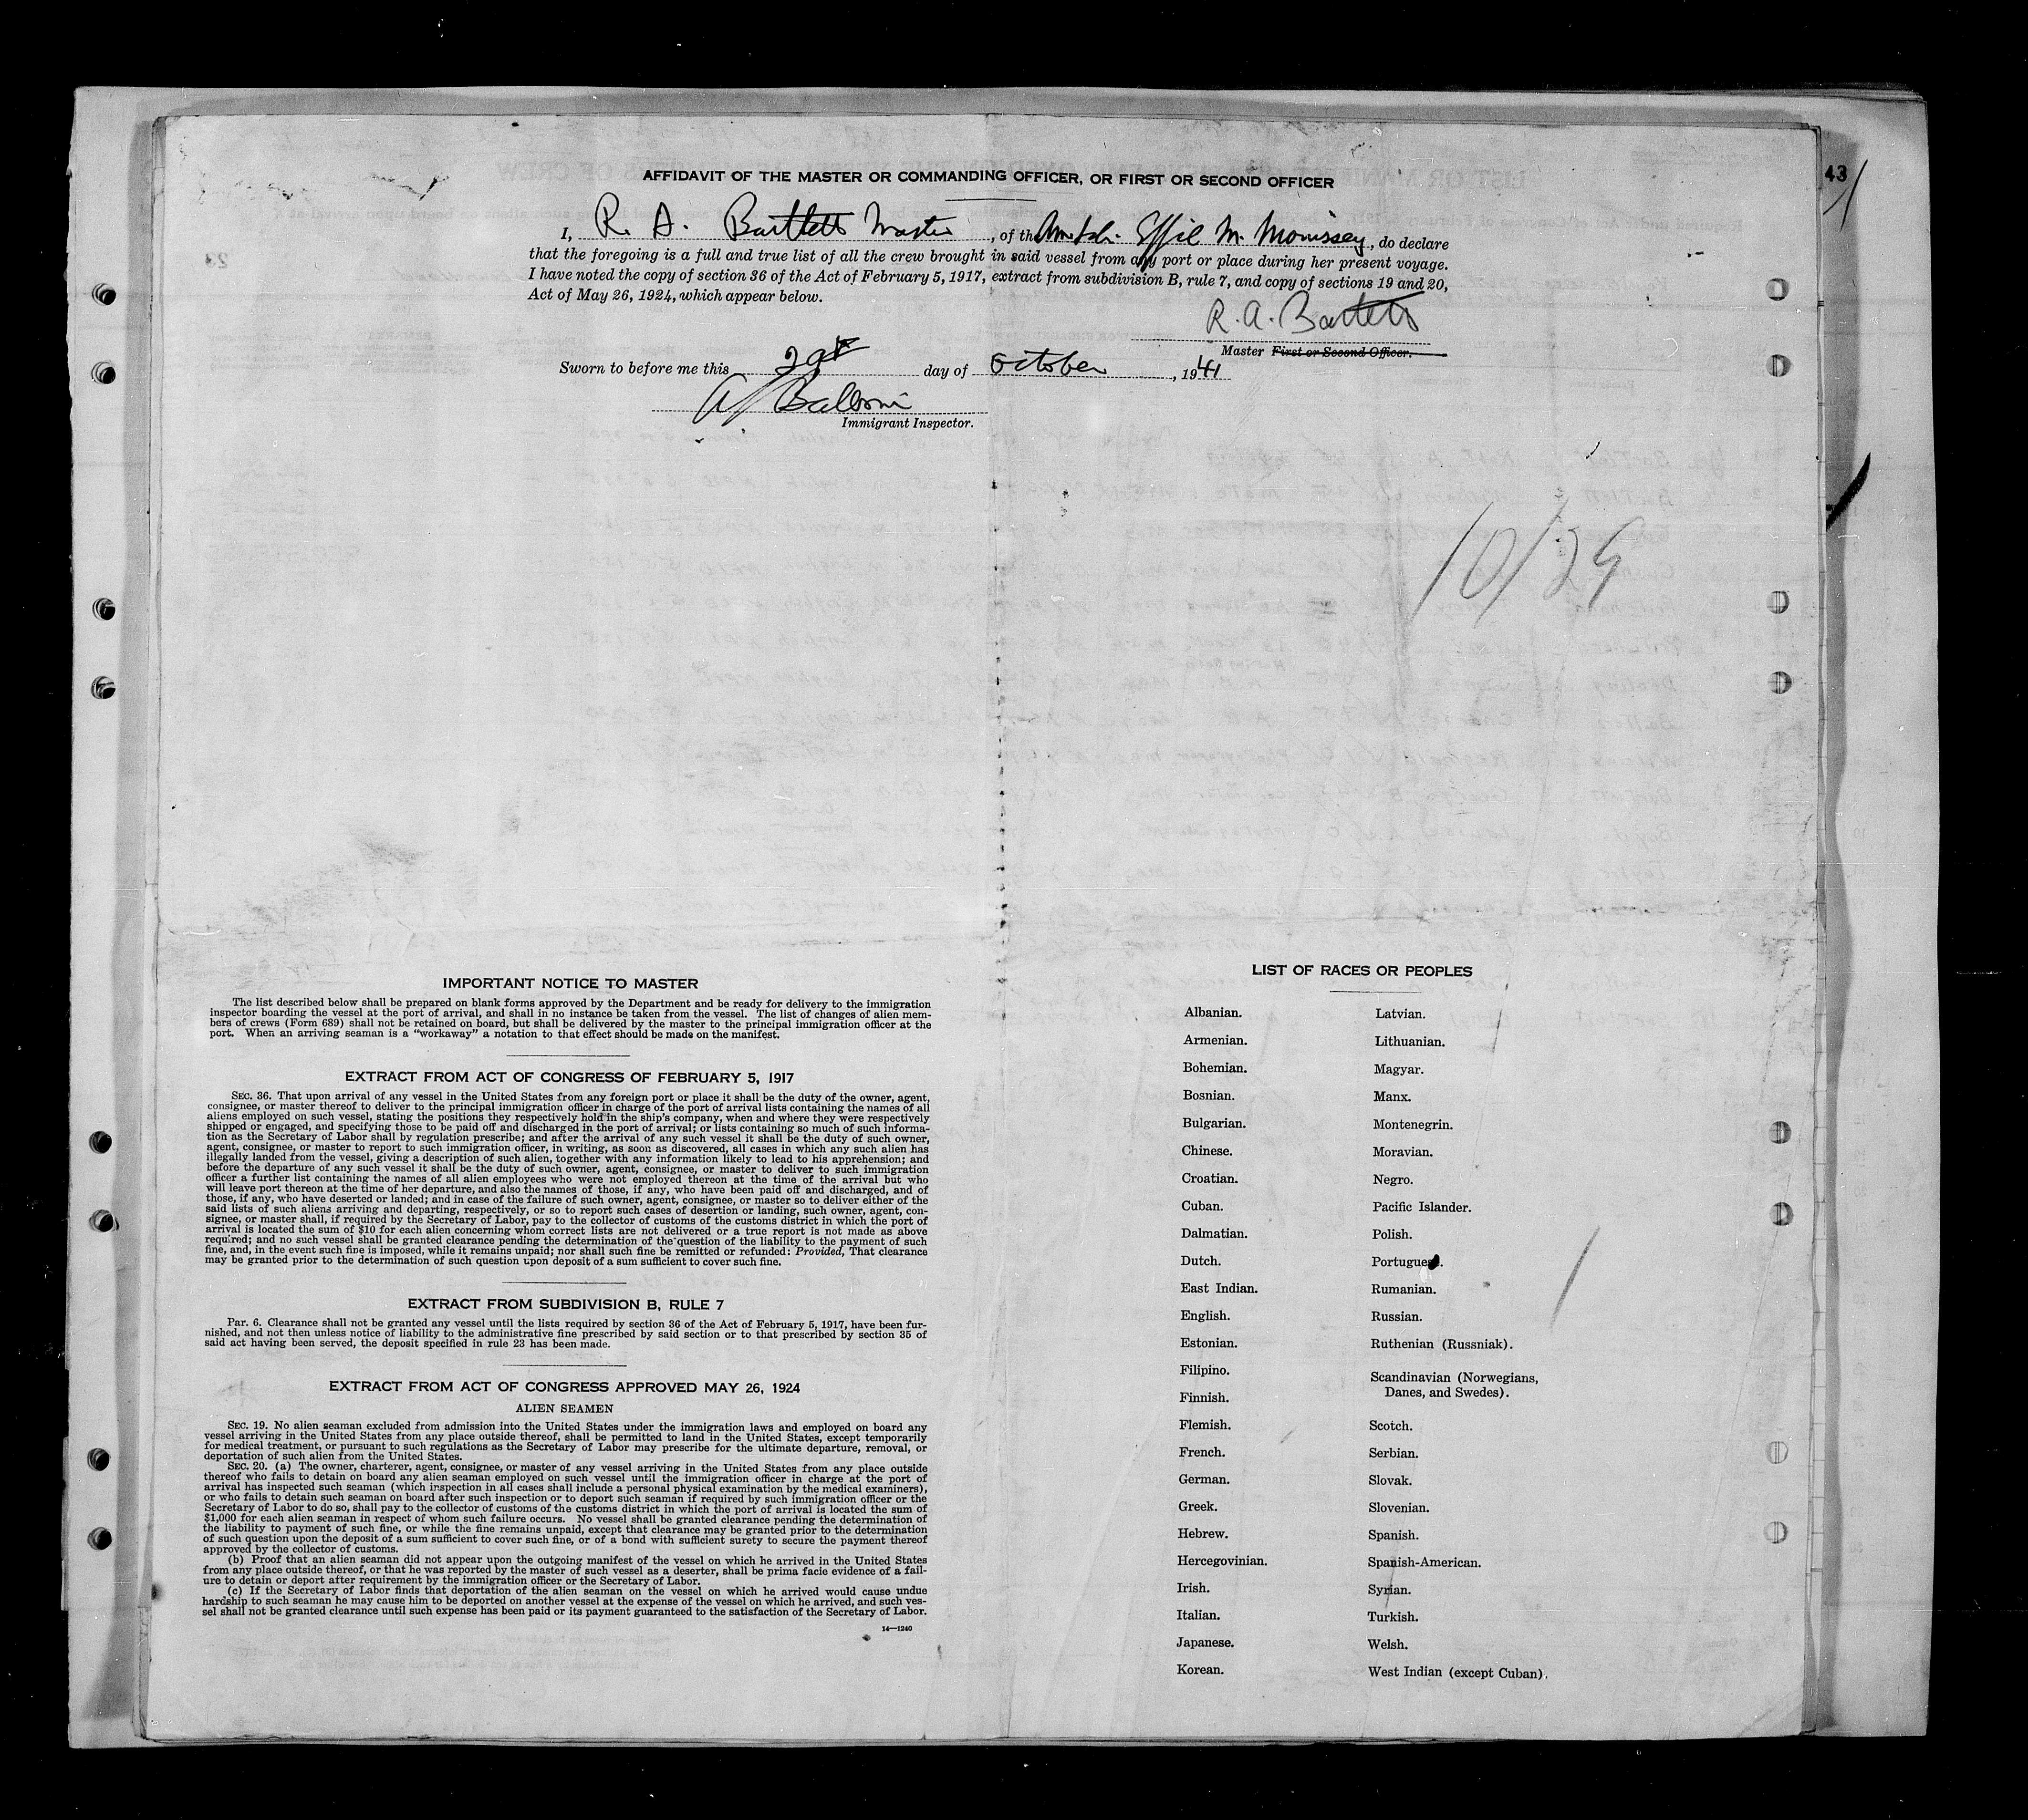 AFFIDAVIT OF THE MASTER OR COMMANDING OFFICER, OR FIRST OR SECOND OFFICER
43
I, R. A. Bartlett Master, of the Am. Sch. Effie M. Morrissey, do declare
that the foregoing is a full and true list of all the crew brought in said vessel from any port or place during her present voyage.
I have noted the copy of section 36 of the Act of February 5, 1917, extract from subdivision B, rule 7, and copy of sections 19 and 20,
Act of May 26, 1924, which appear below.
R. A. Bartlett
Master First or Second Officer.
Sworn to before me this 29th day of October, 1941
Immigrant Inspector.
10/29
IMPORTANT NOTICE TO MASTER
The list described below shall be prepared on blank forms approved by the Department and be ready for delivery to the immigration
inspector boarding the vessel at the port of arrival, and shall in no instance be taken from the vessel. The list of changes of alien mem-
bers of crews (Form 689) shall not be retained on board, but shall be delivered by the master to the principal immigration officer at the
port. When an arriving seaman is a "workaway" a notation to that effect should be made on the manifest.
EXTRACT FROM ACT OF CONGRESS OF FEBRUARY 5, 1917
SEC. 36. That upon arrival of any vessel in the United States from any foreign port or place it shall be the duty of the owner, agent,
consignee, or master thereof to deliver to the principal immigration officer in charge of the port of arrival lists containing the names of all
aliens employed on such vessel, stating the positions they respectively hold in the ship's company, when and where they were respectively
shipped or engaged, and specifying those to be paid off and discharged in the port of arrival; or lists containing so much of such informa-
tion as the Secretary of Labor shall by regulation prescribe; and after the arrival of any such vessel it shall be the duty of such owner,
agent, consignee, or master to report to such immigration officer, in writing, as soon as discovered, all cases in which any such alien has
illegally landed from the vessel, giving a description of such alien, together with any information likely to lead to his apprehension; and
before the departure of any such vessel it shall be the duty of such owner, agent, consignee, or master to deliver to such immigration
officer a further list containing the names of all alien employees who were not employed thereon at the time of the arrival but who
will leave port thereon at the time of her departure, and also the names of those, if any, who have been paid off and discharged, and of
those, if any, who have deserted or landed; and in case of the failure of such owner, agent, consignee, or master so to deliver either of the
said lists of such aliens arriving and departing, respectively, or so to report such cases of desertion or landing, such owner, agent, con-
signee, or master shall, if required by the Secretary of Labor, pay to the collector of customs of the customs district in which the port of
arrival is located the sum of $10 for each alien concerning whom correct lists are not delivered or a true report is not made as above
required; and no such vessel shall be granted clearance pending the determination of the question of the liability to the payment of such
fine, and, in the event such fine is imposed, while it remains unpaid; nor shall such fine be remitted or refunded: Provided, That clearance
may be granted prior to the determination of such question upon deposit of a sum sufficient to cover such fine.
EXTRACT FROM SUBDIVISION B, RULE 7
Par. 6. Clearance shall not be granted any vessel until the lists required by section 36 of the Act of February 5, 1917, have been fur-
nished, and not then unless notice of liability to the administrative fine prescribed by said section or to that prescribed by section 35 of
said act having been served, the deposit specified in rule 23 has been made.
EXTRACT FROM ACT OF CONGRESS APPROVED MAY 26, 1924
ALIEN SEAMEN
SEC. 19. No alien seaman excluded from admission into the United States under the immigration laws and employed on board any
vessel arriving in the United States from any place outside thereof, shall be permitted to land in the United States, except temporarily
for medical treatment, or pursuant to such regulations as the Secretary of Labor may prescribe for the ultimate departure, removal, or
deportation of such alien from the United States.
SEC. 20. (a) The owner, charterer, agent, consignee, or master of any vessel arriving in the United States from any place outside
thereof who fails to detain on board any alien seaman employed on such vessel until the immigration officer in charge at the port of
arrival has inspected such seaman (which inspection in all cases shall include a personal physical examination by the medical examiners),
or who fails to detain such seaman on board after such inspection or to deport such seaman if required by such immigration officer or the
Secretary of Labor to do so, shall pay to the collector of customs of the customs district in which the port of arrival is located the sum of
$1,000 for each alien seaman in respect of whom such failure occurs. No vessel shall be granted clearance pending the determination of
the liability to payment of such fine, or while the fine remains unpaid, except that clearance may be granted prior to the determination
of such question upon the deposit of a sum sufficient to cover such fine, or of a bond with sufficient surety to secure the payment thereof
approved by the collector of customs.
(b) Proof that an alien seaman did not appear upon the outgoing manifest of the vessel on which he arrived in the United States
from any place outside thereof, or that he was reported by the master of such vessel as a deserter, shall be prima facie evidence of a fail-
ure to detain or deport after requirement by the immigration officer or the Secretary of Labor.
(c) If the Secretary of Labor finds that deportation of the alien seaman on the vessel on which he arrived would cause undue
hardship to such seaman he may cause him to be deported on another vessel at the expense of the vessel on which he arrived, and such ves-
sel shall not be granted clearance until such expense has been paid or its payment guaranteed to the satisfaction of the Secretary of Labor.
14—1240
LIST OF RACES OR PEOPLES
Albanian.
Armenian.
Bohemian.
Bosnian.
Bulgarian.
Chinese.
Croatian.
Cuban.
Dalmatian.
Dutch.
East Indian.
English.
Estonian.
Filipino.
Finnish.
Flemish.
French.
German.
Greek.
Hebrew.
Hercegovinian.
Irish.
Italian.
Japanese.
Korean.
Latvian.
Lithuanian.
Magyar.
Manx.
Montenegrin.
Moravian.
Negro.
Pacific Islander.
Polish.
Portuguese.
Rumanian.
Russian.
Ruthenian (Russniak).
Scandinavian (Norwegians,
Danes, and Swedes).
Scotch.
Serbian.
Slovak.
Slovenian.
Spanish.
Spanish-American.
Syrian.
Turkish.
Welsh.
West Indian (except Cuban).